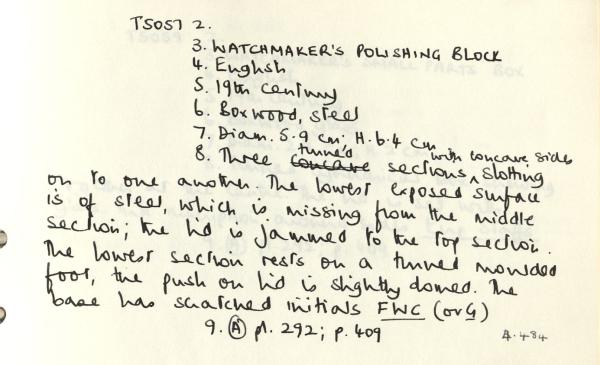 TS057 2.
3. WATCHMAKER'S POLISHING BLOCK
4. English
5. 19th century
6. Boxwood, steel
7. Diam. 5.9 cm; H. 6.4 cm
8. Three concave turned sections, with concave sides slotting
on to one another. The lowest exposed surface
is of steel, which is missing from the middle
section; the lid is jammed to the top section.
The lowest section rests on a turned moulded
foot, the push on lid is slightly domed. The
base has scratched initials FWC (or G)
9. A pl. 292; p. 409
A.484